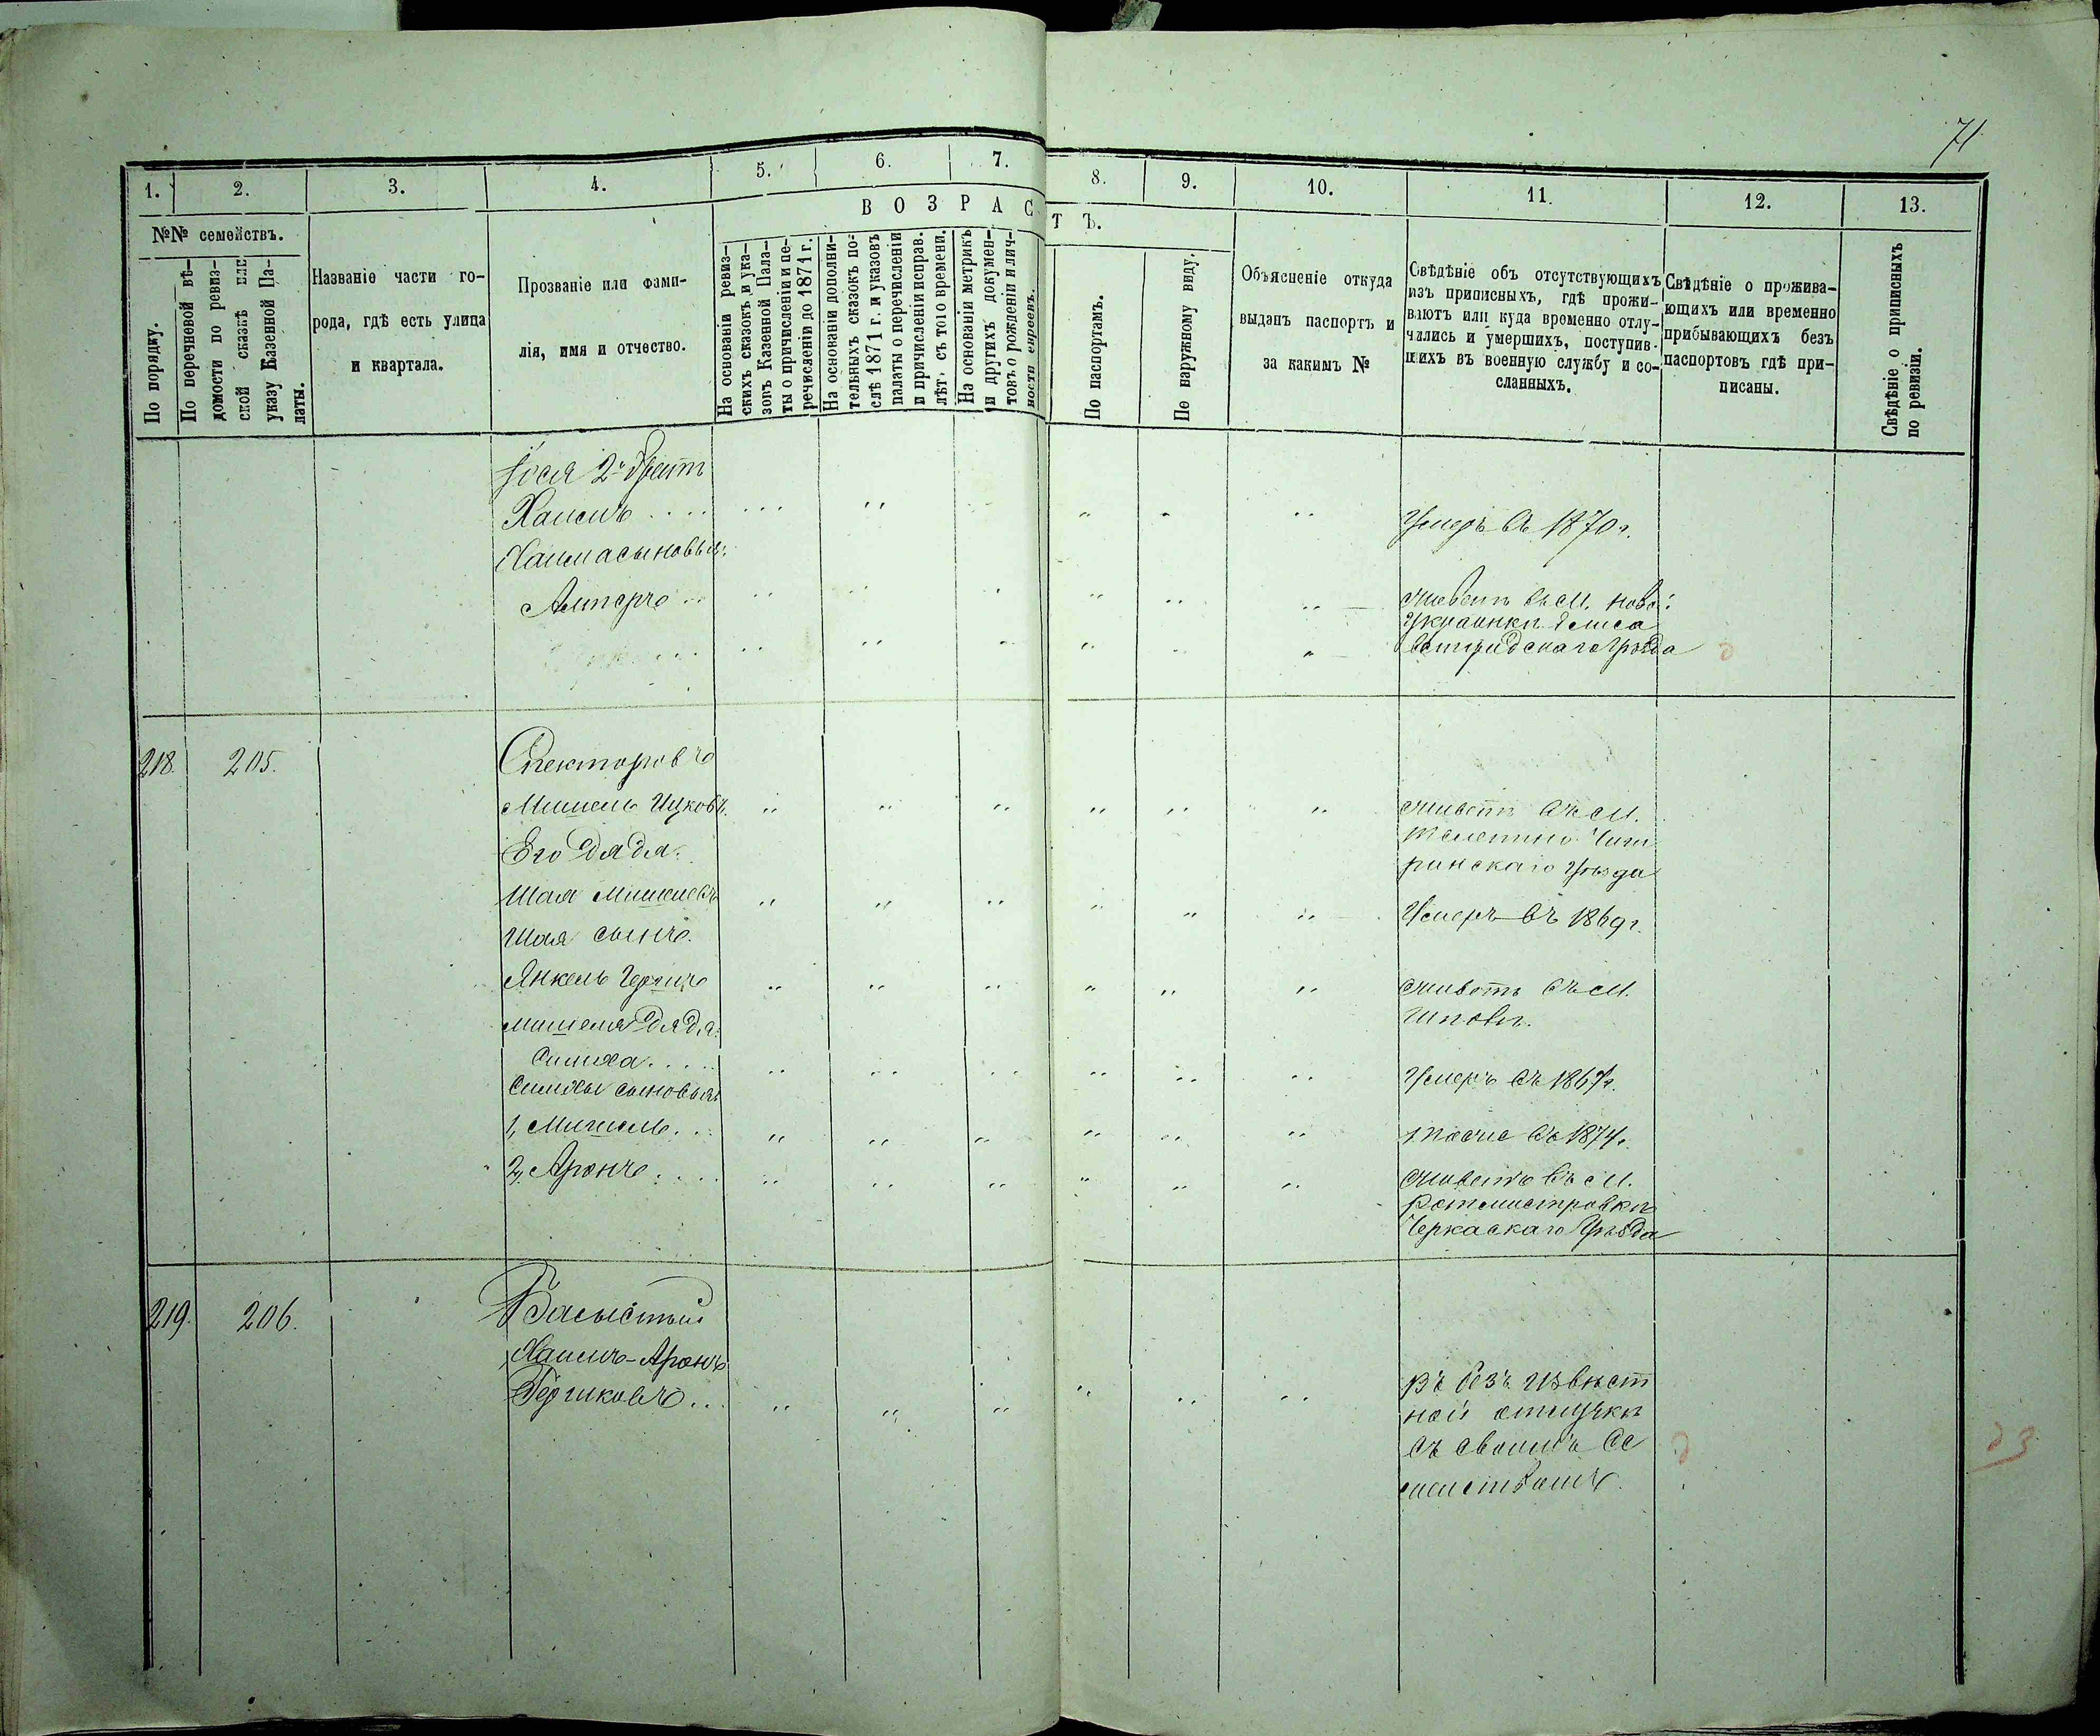 71
1.
2.
3.
4.
5.
6.
7.
8.
9.
10.
11.
12.
13.
№№ семействъ.
По порядку.
По перечневой вѣ-
домости по ревиз-
ской сказкѣ или
указу Казенной Па-
латы.
Названіе части го-
рода, гдѣ есть улица
и квартала.
Прозваніе или фами-
лія, имя и отчество.
ВОЗРАСТЪ.
На основаніи ревиз-
скихъ сказокъ и ука-
зовъ Казенной Пала-
ты о причисленіи и пе-
речисленіи до 1871 г.
На основаніи дополни-
тельныхъ сказокъ по-
слѣ 1871 г. и указовъ
палаты о перечисленіи
и причисленіи исправ.
лѣтъ съ того времени.
На основаніи метрикъ
и другихъ докумен-
товъ о рожденіи и лич-
ности евреевъ.
По паспортамъ.
По наружному виду.
Объясненіе откуда
выданъ паспортъ и
за какимъ №
Свѣдѣніе объ отсутствующихъ
изъ приписныхъ, гдѣ прожи-
ваютъ или куда временно отлу-
чились и умершихъ, поступив-
шихъ въ военную службу и со-
сланныхъ.
Свѣдѣніе о прожива-
ющихъ или временно
прибывающихъ безъ
паспортовъ гдѣ при-
писаны.
Свѣдѣніе о приписныхъ
по ревизіи.
Іося 2й братъ
Хаимъ
Умеръ въ 1870 г.
Хаима сыновья:
Алтеръ
живетъ въ м. Новой
Украинки Елиса
ветградскаго Уѣзда
218. 205.
Спекторовъ
Мишель Ицковъ.
живетъ въ м.
Телепино Чиги
ринскаго Уѣзда
Его дядя:
Шая Мишелевъ
Умеръ въ 1869 г.
Шая сынъ.
Янкель Гершъ
живетъ въ м.
Шполы.
Мишеля дядя:
Симха
Умеръ въ 1867 г.
Симхи сыновья
1, Мишель
тоже въ 1874.
2, Аронъ
живетъ въ м.
Ротмистровки
Черкаскаго Уѣзда
219. 206.
Басыстый
Хаимъ-Аронъ
Гершковъ
въ безъ извѣст
ной отлучки
съ своимъ се
мействомъ.